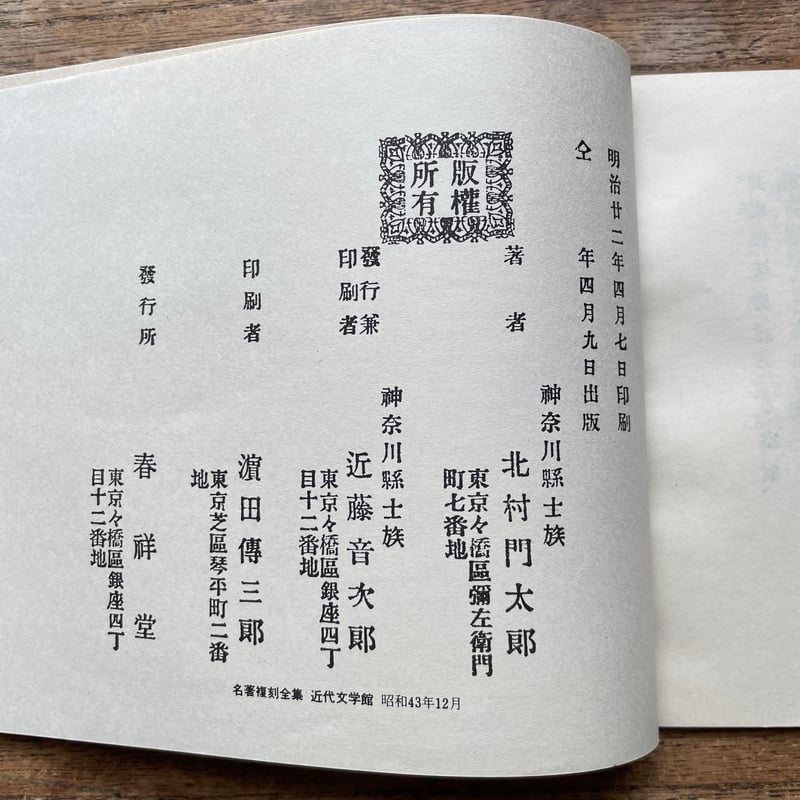 明治廿二年四月七日印刷
仝　年四月九日出版
版權
所有
著者
神奈川縣士族
北村門太郎
東京々橋區彌左衛門
町七番地
發行兼
印刷者
神奈川縣士族
近藤音次郎
東京々橋區銀座四丁
目十二番地
印刷者
濵田傳三郎
東京芝區琴平町二番
地
發行所
春祥堂
東京々橋區銀座四丁
目十二番地
名著複刻全集 近代文学館 昭和43年12月